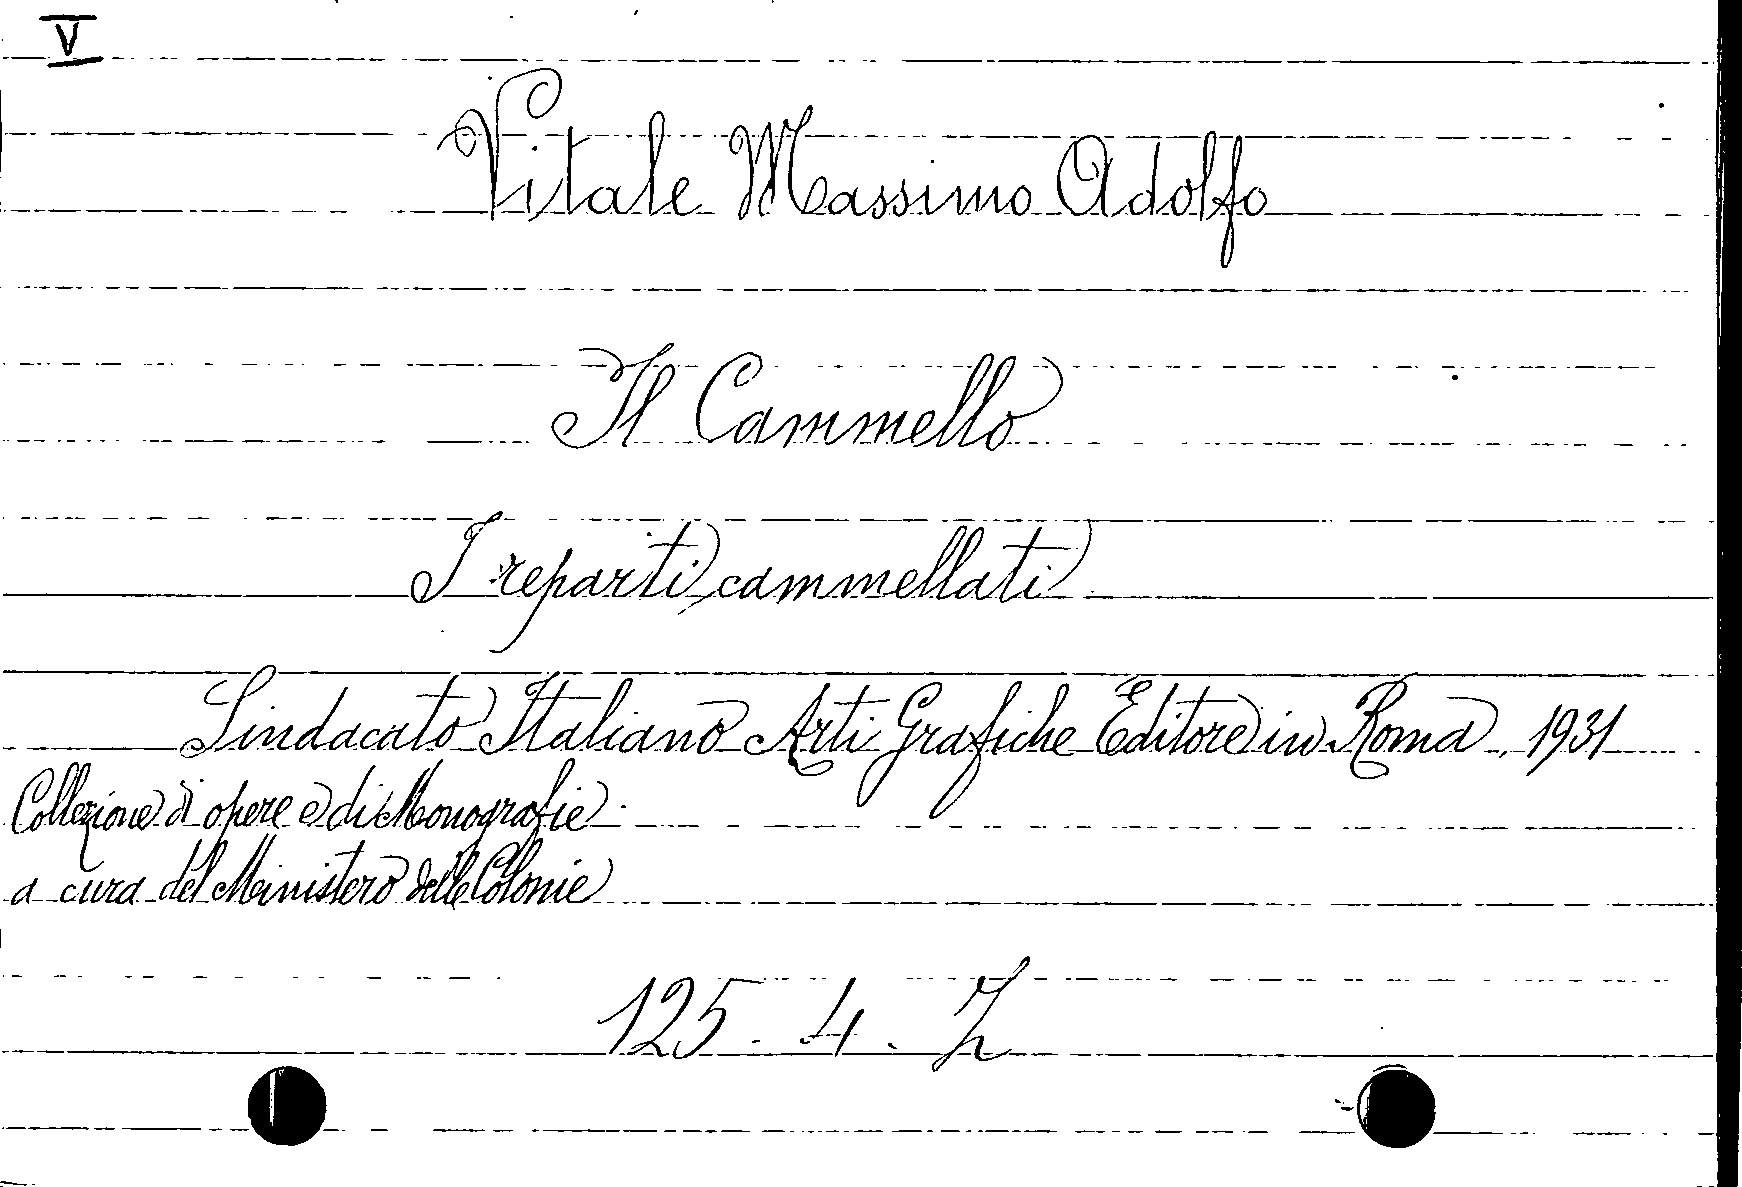 V
Vitale Massimo Adolfo
Il Cammello
I reparti cammellati
Sindacato Italiano Arti Grafiche Editore in Roma, 1931
Collezione di opere e di Monografie
a cura del Ministero delle Colonie
125. 4. Z